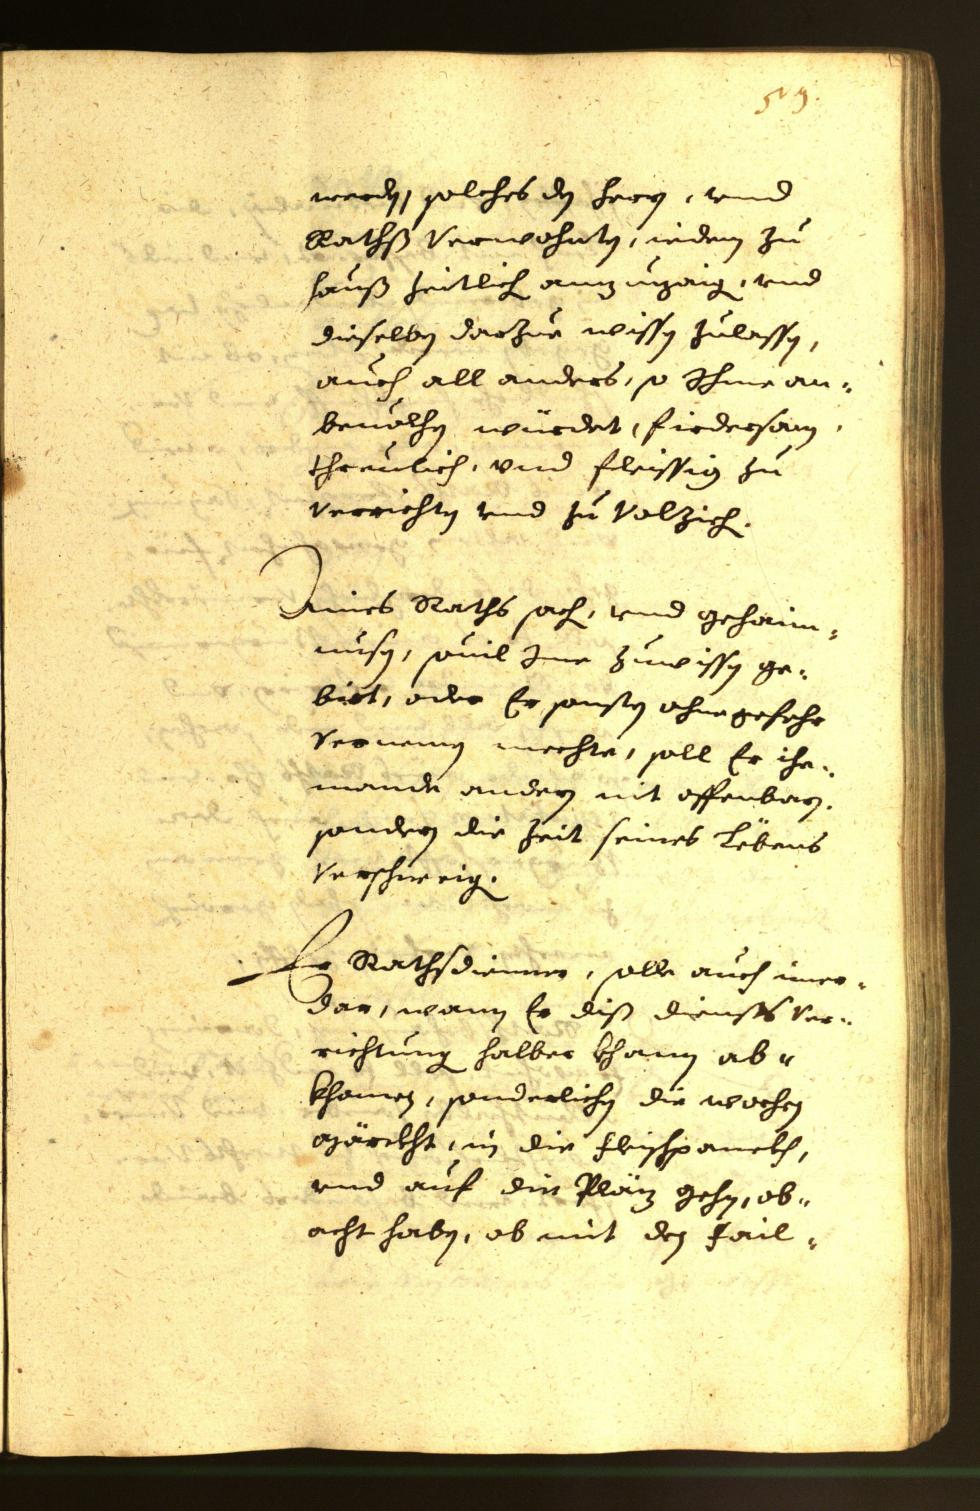 59.
werden, solches den herrn, vnnd
Rathß Verwohnten, iedem zu
hauß zeitlich anzuzaigen, vnd
dieselben darzue wissen zulassen,
auch all anders, so Ihme an-
beuolhen würdet, firdersam,
threulich, vnd fleissig zu
Verrichten vnnd zu Volziehen.
Aines Raths sach, vnnd gehaim-
nusen, souil Ime zuwissen ge-
birt, oder Er sonsten ohnegefehr
Vernemen mechte, soll Er ihe-
mande andern nit offenbaren.
sondern die Zeit seines Lebens
Verschweigen.
Er Rathsdienner, solle auch imer-
dar, wann Er diß diensts Ver-
richtung halber khann ab-
khomen, sonderlichen die wochen
märckht, in die fleischpanckh,
vnnd auf die Pläz gehen, ob-
acht haben, ob mit den Fail-